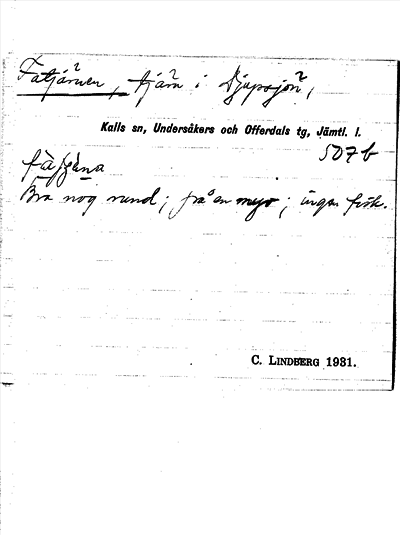 Fatjärnen, tjärn i Djupsjön,
Kalls sn, Undersåkers och Offerdals tg, Jämtl. l.
507 b
fàtjɛ̀ṇa
Bra nog rund; på en myr; ingen fisk.
C. LINDBERG 1931.